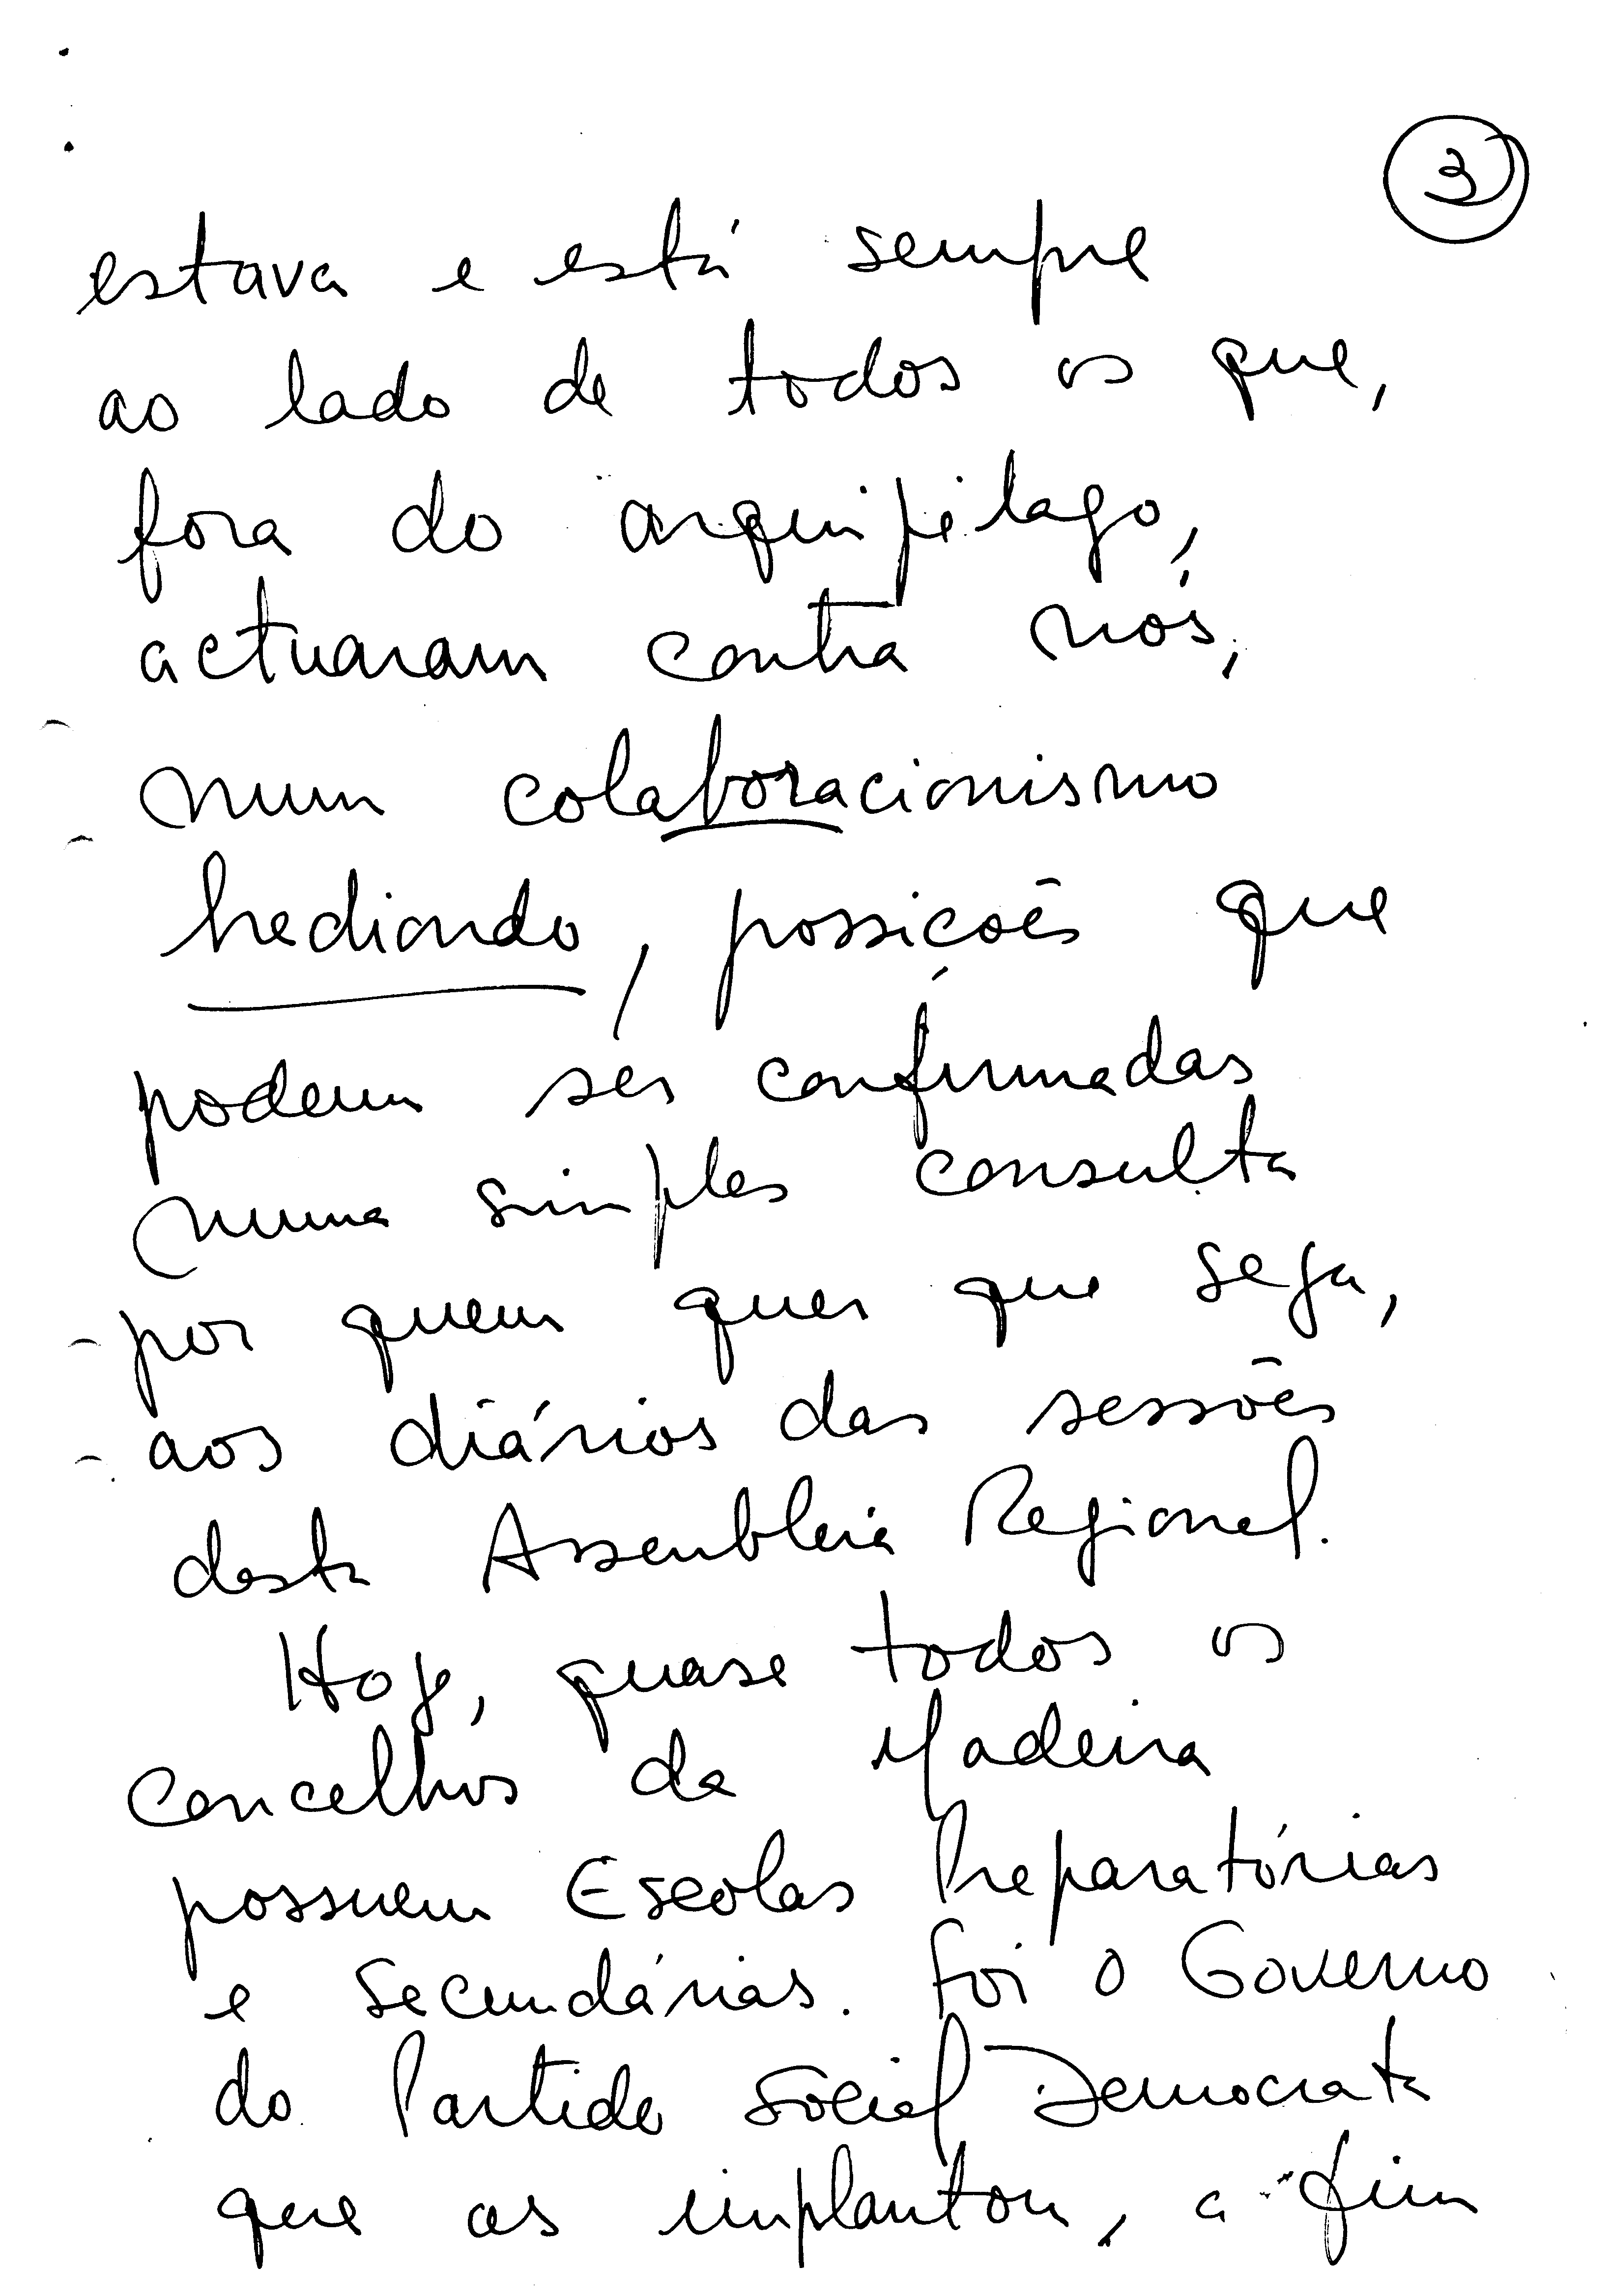 3
estava e está sempre
ao lado de todos os que,
fora do arquipélago,
actuaram contra nós,
num colaboracionismo
hediondo, possições que
podem ser confirmadas
numa simples consulta
por quem quer que seja,
aos diários das sessões
desta Assembleia Regional.
Hoje, quase todos os
concelhos da Madeira
possuem Escolas Preparatórias
e Secundárias. Foi o Governo
do Partido Social Democrata
que as implantou, a fim